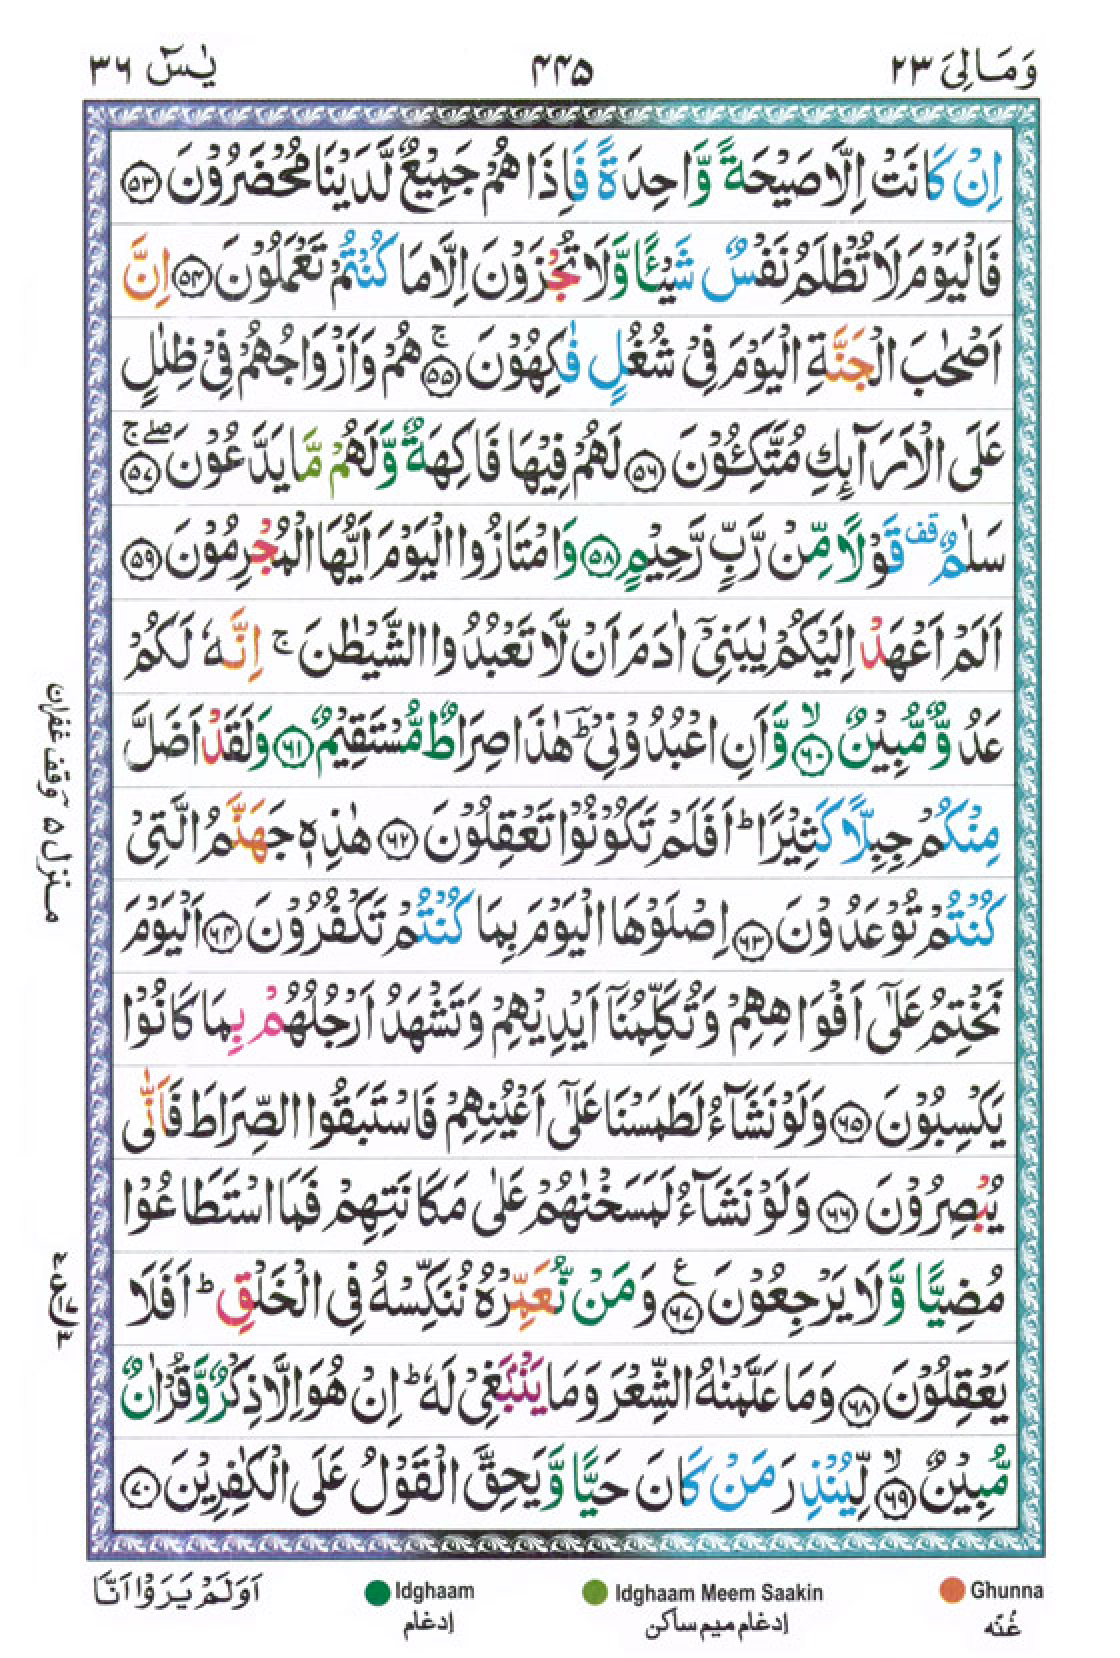 وَمَالِیَ ٢٣
۴۴۵
یٰسٓ ٣٦
اِنْ كَانَتْ اِلَّا صَیْحَةً وَّاحِدَةً فَاِذَا هُمْ جَمِیْعٌ لَّدَیْنَا مُحْضَرُوْنَ ۵۳
فَالْیَوْمَ لَا تُظْلَمُ نَفْسٌ شَیْـًٔا وَّلَا تُجْزَوْنَ اِلَّا مَا كُنْتُمْ تَعْمَلُوْنَ ۵۴ اِنَّ
اَصْحٰبَ الْجَنَّةِ الْیَوْمَ فِیْ شُغُلٍ فٰكِهُوْنَ ۚ ۵۵ هُمْ وَاَزْوَاجُهُمْ فِیْ ظِلٰلٍ
عَلَی الْاَرَآىِٕكِ مُتَّكِـُٔوْنَ ۵۶ لَهُمْ فِیْهَا فَاكِهَةٌ وَّلَهُمْ مَّا یَدَّعُوْنَ ۖۚ ۵۷
سَلٰمٌ قف قَوْلًا مِّنْ رَّبٍّ رَّحِیْمٍ ۵۸ وَامْتَازُوا الْیَوْمَ اَیُّهَا الْمُجْرِمُوْنَ ۵۹
اَلَمْ اَعْهَدْ اِلَیْكُمْ یٰبَنِیْۤ اٰدَمَ اَنْ لَّا تَعْبُدُوا الشَّیْطٰنَ ۚ اِنَّهٗ لَكُمْ
عَدُوٌّ مُّبِیْنٌ ۙ ۶۰ وَّاَنِ اعْبُدُوْنِیْ ؔؕ هٰذَا صِرَاطٌ مُّسْتَقِیْمٌ ۶۱ وَلَقَدْ اَضَلَّ
مِنْكُمْ جِبِلًّا كَثِیْرًا ؕ اَفَلَمْ تَكُوْنُوْا تَعْقِلُوْنَ ۶۲ هٰذِهٖ جَهَنَّمُ الَّتِیْ
كُنْتُمْ تُوْعَدُوْنَ ۶۳ اِصْلَوْهَا الْیَوْمَ بِمَا كُنْتُمْ تَكْفُرُوْنَ ۶۴ اَلْیَوْمَ
نَخْتِمُ عَلٰۤی اَفْوَاهِهِمْ وَتُكَلِّمُنَاۤ اَیْدِیْهِمْ وَتَشْهَدُ اَرْجُلُهُمْ بِمَا كَانُوْا
یَكْسِبُوْنَ ۶۵ وَلَوْ نَشَآءُ لَطَمَسْنَا عَلٰۤی اَعْیُنِهِمْ فَاسْتَبَقُوا الصِّرَاطَ فَاَنّٰی
یُبْصِرُوْنَ ۶۶ وَلَوْ نَشَآءُ لَمَسَخْنٰهُمْ عَلٰی مَكَانَتِهِمْ فَمَا اسْتَطَاعُوْا
مُضِیًّا وَّلَا یَرْجِعُوْنَ ع ۶۷ وَمَنْ نُّعَمِّرْهُ نُنَكِّسْهُ فِی الْخَلْقِ ؕ اَفَلَا
یَعْقِلُوْنَ ۶۸ وَمَا عَلَّمْنٰهُ الشِّعْرَ وَمَا یَنْۢبَغِیْ لَهٗ ؕ اِنْ هُوَ اِلَّا ذِكْرٌ وَّقُرْاٰنٌ
مُّبِیْنٌ ۙ ۶۹ لِّیُنْذِرَ مَنْ كَانَ حَیًّا وَّیَحِقَّ الْقَوْلُ عَلَی الْكٰفِرِیْنَ ۷۰
منزل ۵ وقف غفران
اَوَلَمْ یَرَوْا اَنَّا
Idghaam
إدغام
Idghaam Meem Saakin
إدغام میم ساکن
Ghunna
غُنّه